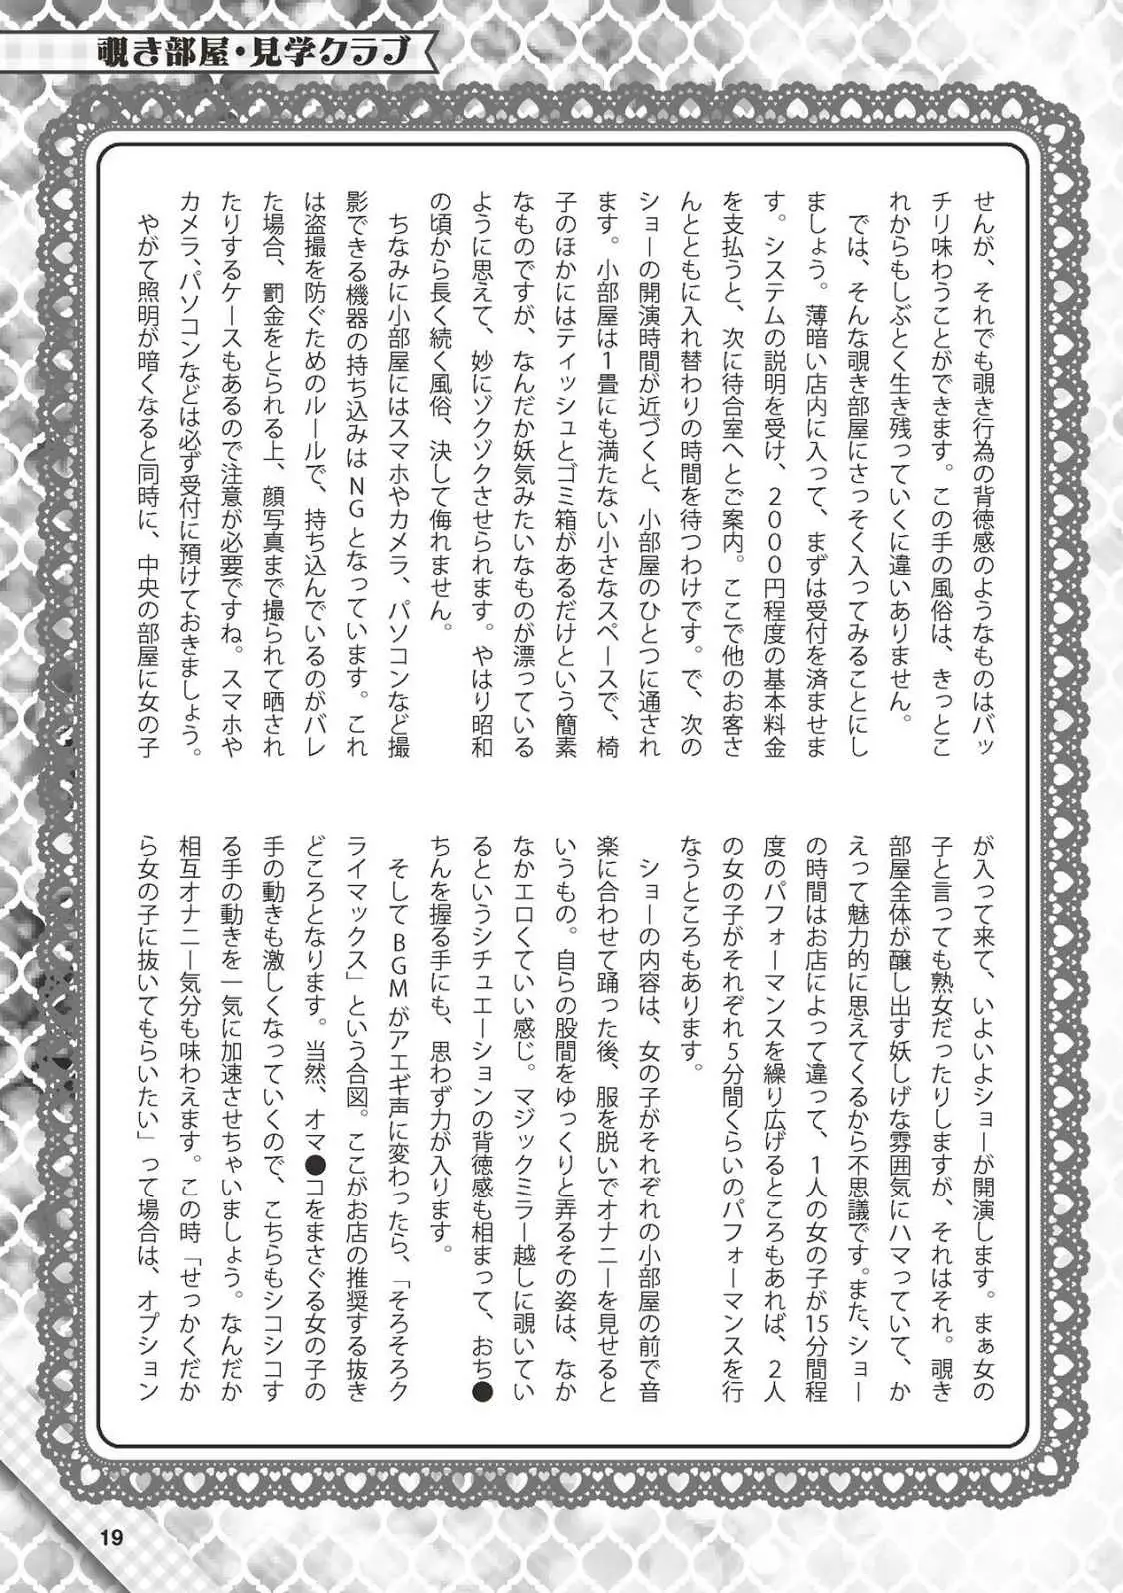 覗き部屋・見学クラブ
せんが、それでも覗き行為の背徳感のようなものはバッ
チリ味わうことができます。この手の風俗は、きっとこ
れからもしぶとく生き残っていくに違いありません。
では、そんな覗き部屋にさっそく入ってみることにし
ましょう。薄暗い店内に入って、まずは受付を済ませま
す。システムの説明を受け、2000円程度の基本料金
を支払うと、次に待合室へとご案内。ここで他のお客さ
んとともに入れ替わりの時間を待つわけです。で、次の
ショーの開演時間が近づくと、小部屋のひとつに通され
ます。小部屋は1畳にも満たない小さなスペースで、椅
子のほかにはティッシュとゴミ箱があるだけという簡素
なものですが、なんだか妖気みたいなものが漂っている
ように思えて、妙にゾクゾクさせられます。やはり昭和
の頃から長く続く風俗、決して侮れません。
ちなみに小部屋にはスマホやカメラ、パソコンなど撮
影できる機器の持ち込みはNGとなっています。これ
は盗撮を防ぐためのルールで、持ち込んでいるのがバレ
た場合、罰金をとられる上、顔写真まで撮られて晒され
たりするケースもあるので注意が必要ですね。スマホや
カメラ、パソコンなどは必ず受付に預けておきましょう。
やがて照明が暗くなると同時に、中央の部屋に女の子
が入って来て、いよいよショーが開演します。まぁ女の
子と言っても熟女だったりしますが、それはそれ。覗き
部屋全体が醸し出す妖しげな雰囲気にハマっていて、か
えって魅力的に思えてくるから不思議です。また、ショー
の時間はお店によって違って、1人の女の子が15分間程
度のパフォーマンスを繰り広げるところもあれば、2人
の女の子がそれぞれ5分間くらいのパフォーマンスを行
なうところもあります。
ショーの内容は、女の子がそれぞれの小部屋の前で音
楽に合わせて踊った後、服を脱いでオナニーを見せると
いうもの。自らの股間をゆっくりと弄るその姿は、なか
なかエロくていい感じ。マジックミラー越しに覗いてい
るというシチュエーションの背徳感も相まって、おち●
ちんを握る手にも、思わず力が入ります。
そしてBGMがアエギ声に変わったら、「そろそろク
ライマックス」という合図。ここがお店の推奨する抜き
どころとなります。当然、オマ●コをまさぐる女の子の
手の動きも激しくなっていくので、こちらもシコシコす
る手の動きを一気に加速させちゃいましょう。なんだか
相互オナニー気分も味わえます。この時「せっかくだか
ら女の子に抜いてもらいたい」って場合は、オプション
19